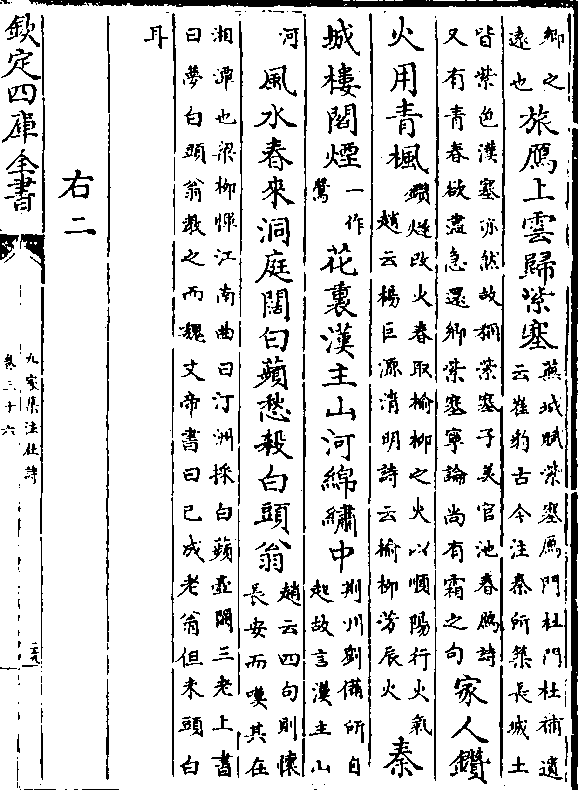 鄉之
遠也
旅鴈上雲歸紫塞
蕪城賦紫塞鴈門杜門杜補遺
云崔豹古今注秦所築長城土
皆紫色漢塞亦然故稱紫塞子美官池春鴈詩
又有青春欲盡急還鄉紫塞寧論尚有霜之句
家人鑽
火用青楓
鑽燧改火春取榆柳之火以順陽行火氣
趙云楊巨源清明詩云榆柳芳辰火
秦
城樓閣煙
一作
鶯
花裏漢主山河綿繡中
荆州劉備所自
起故言漢主山
河
風水春來洞庭闊白蘋愁殺白頭翁
趙云四句則懷
長安而嘆其在
湘潭也梁柳惲江南曲曰汀洲採白蘋壺關三老上書
曰夢白頭翁教之而魏文帝書曰已成老翁但未頭白
耳
右二
欽定四庫全書
九家集注杜詩
卷三十六